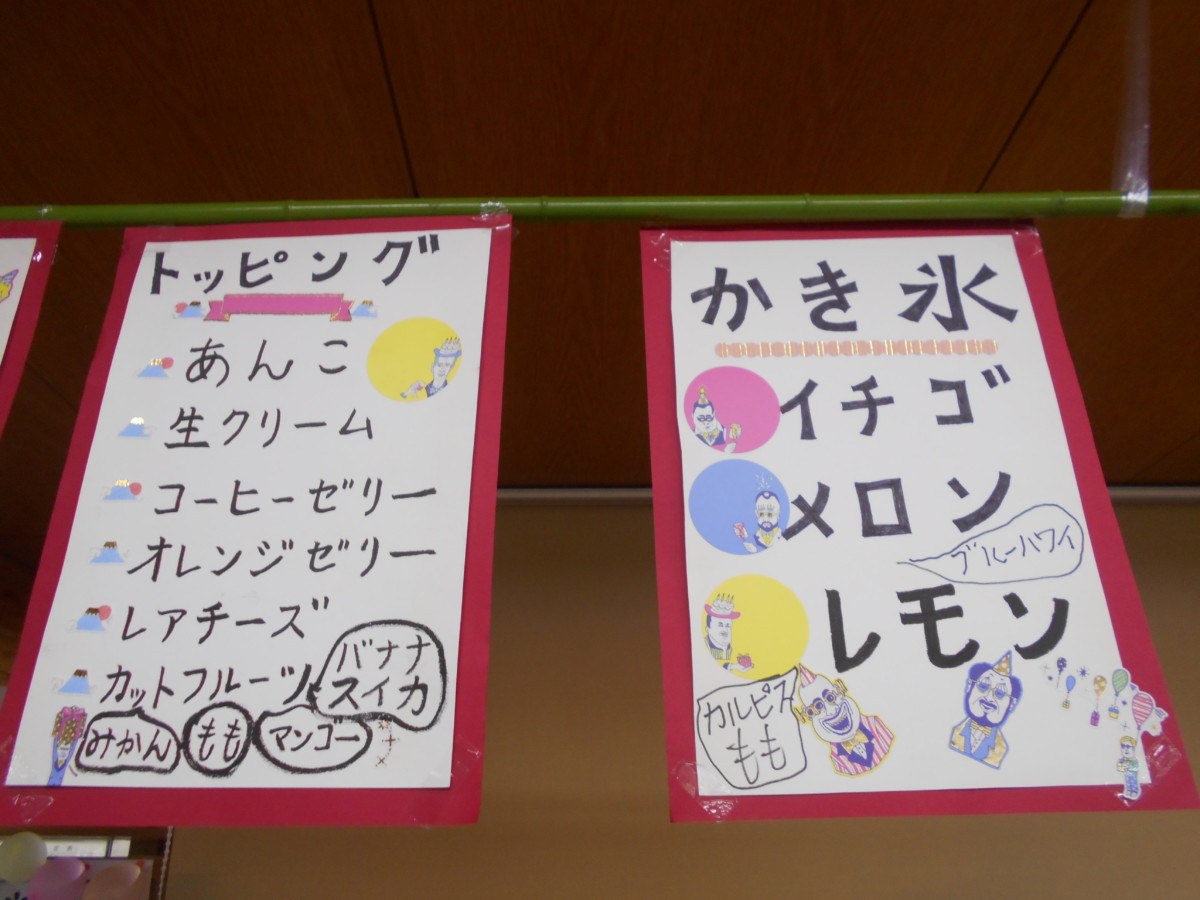 トッピング
あんこ
生クリーム
コーヒーゼリー
オレンジゼリー
レアチーズ
カットフルーツ
バナナ
スイカ
みかん
もも
マンゴー
かき氷
イチゴ
メロン
ブルーハワイ
レモン
カルピス
もも